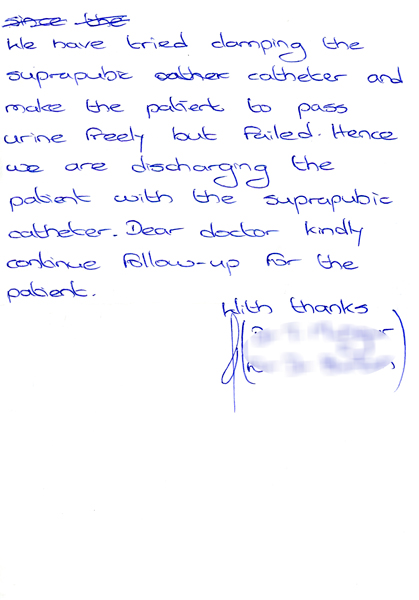 since the
We have tried clamping the
suprapubic cather catheter and
make the patient to pass
urine freely but failed. Hence
we are discharging the
patient with the suprapubic
catheter. Dear doctor kindly
continue follow-up for the
patient.
With thanks